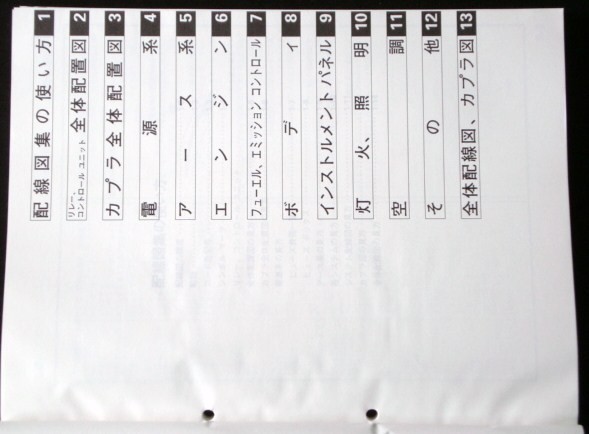 1 配線図集の使い方
2 リレー、コントロール ユニット 全体配置図
3 カプラ全体配置図
4 電源系
5 アース系
6 エンジン
7 フューエル、エミッション コントロール
8 ボディ
9 インストルメントパネル
10 灯火、照明
11 空調
12 その他
13 全体配線図、カプラ図